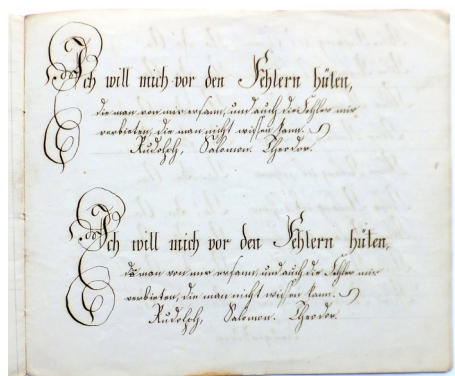 Ich will mich vor den Fehlern hüten,
die man von mir ersann, und auch die Fehler mir
verbieten, die man nicht wissen kann.
Rudolph, Salomon. Theodor.
Ich will mich vor den Fehlern hüten,
man von mir ersann, und auch die Fehler mir
verbieten, die man nicht wissen kann.
Rudolph, Salomon. Theodor.